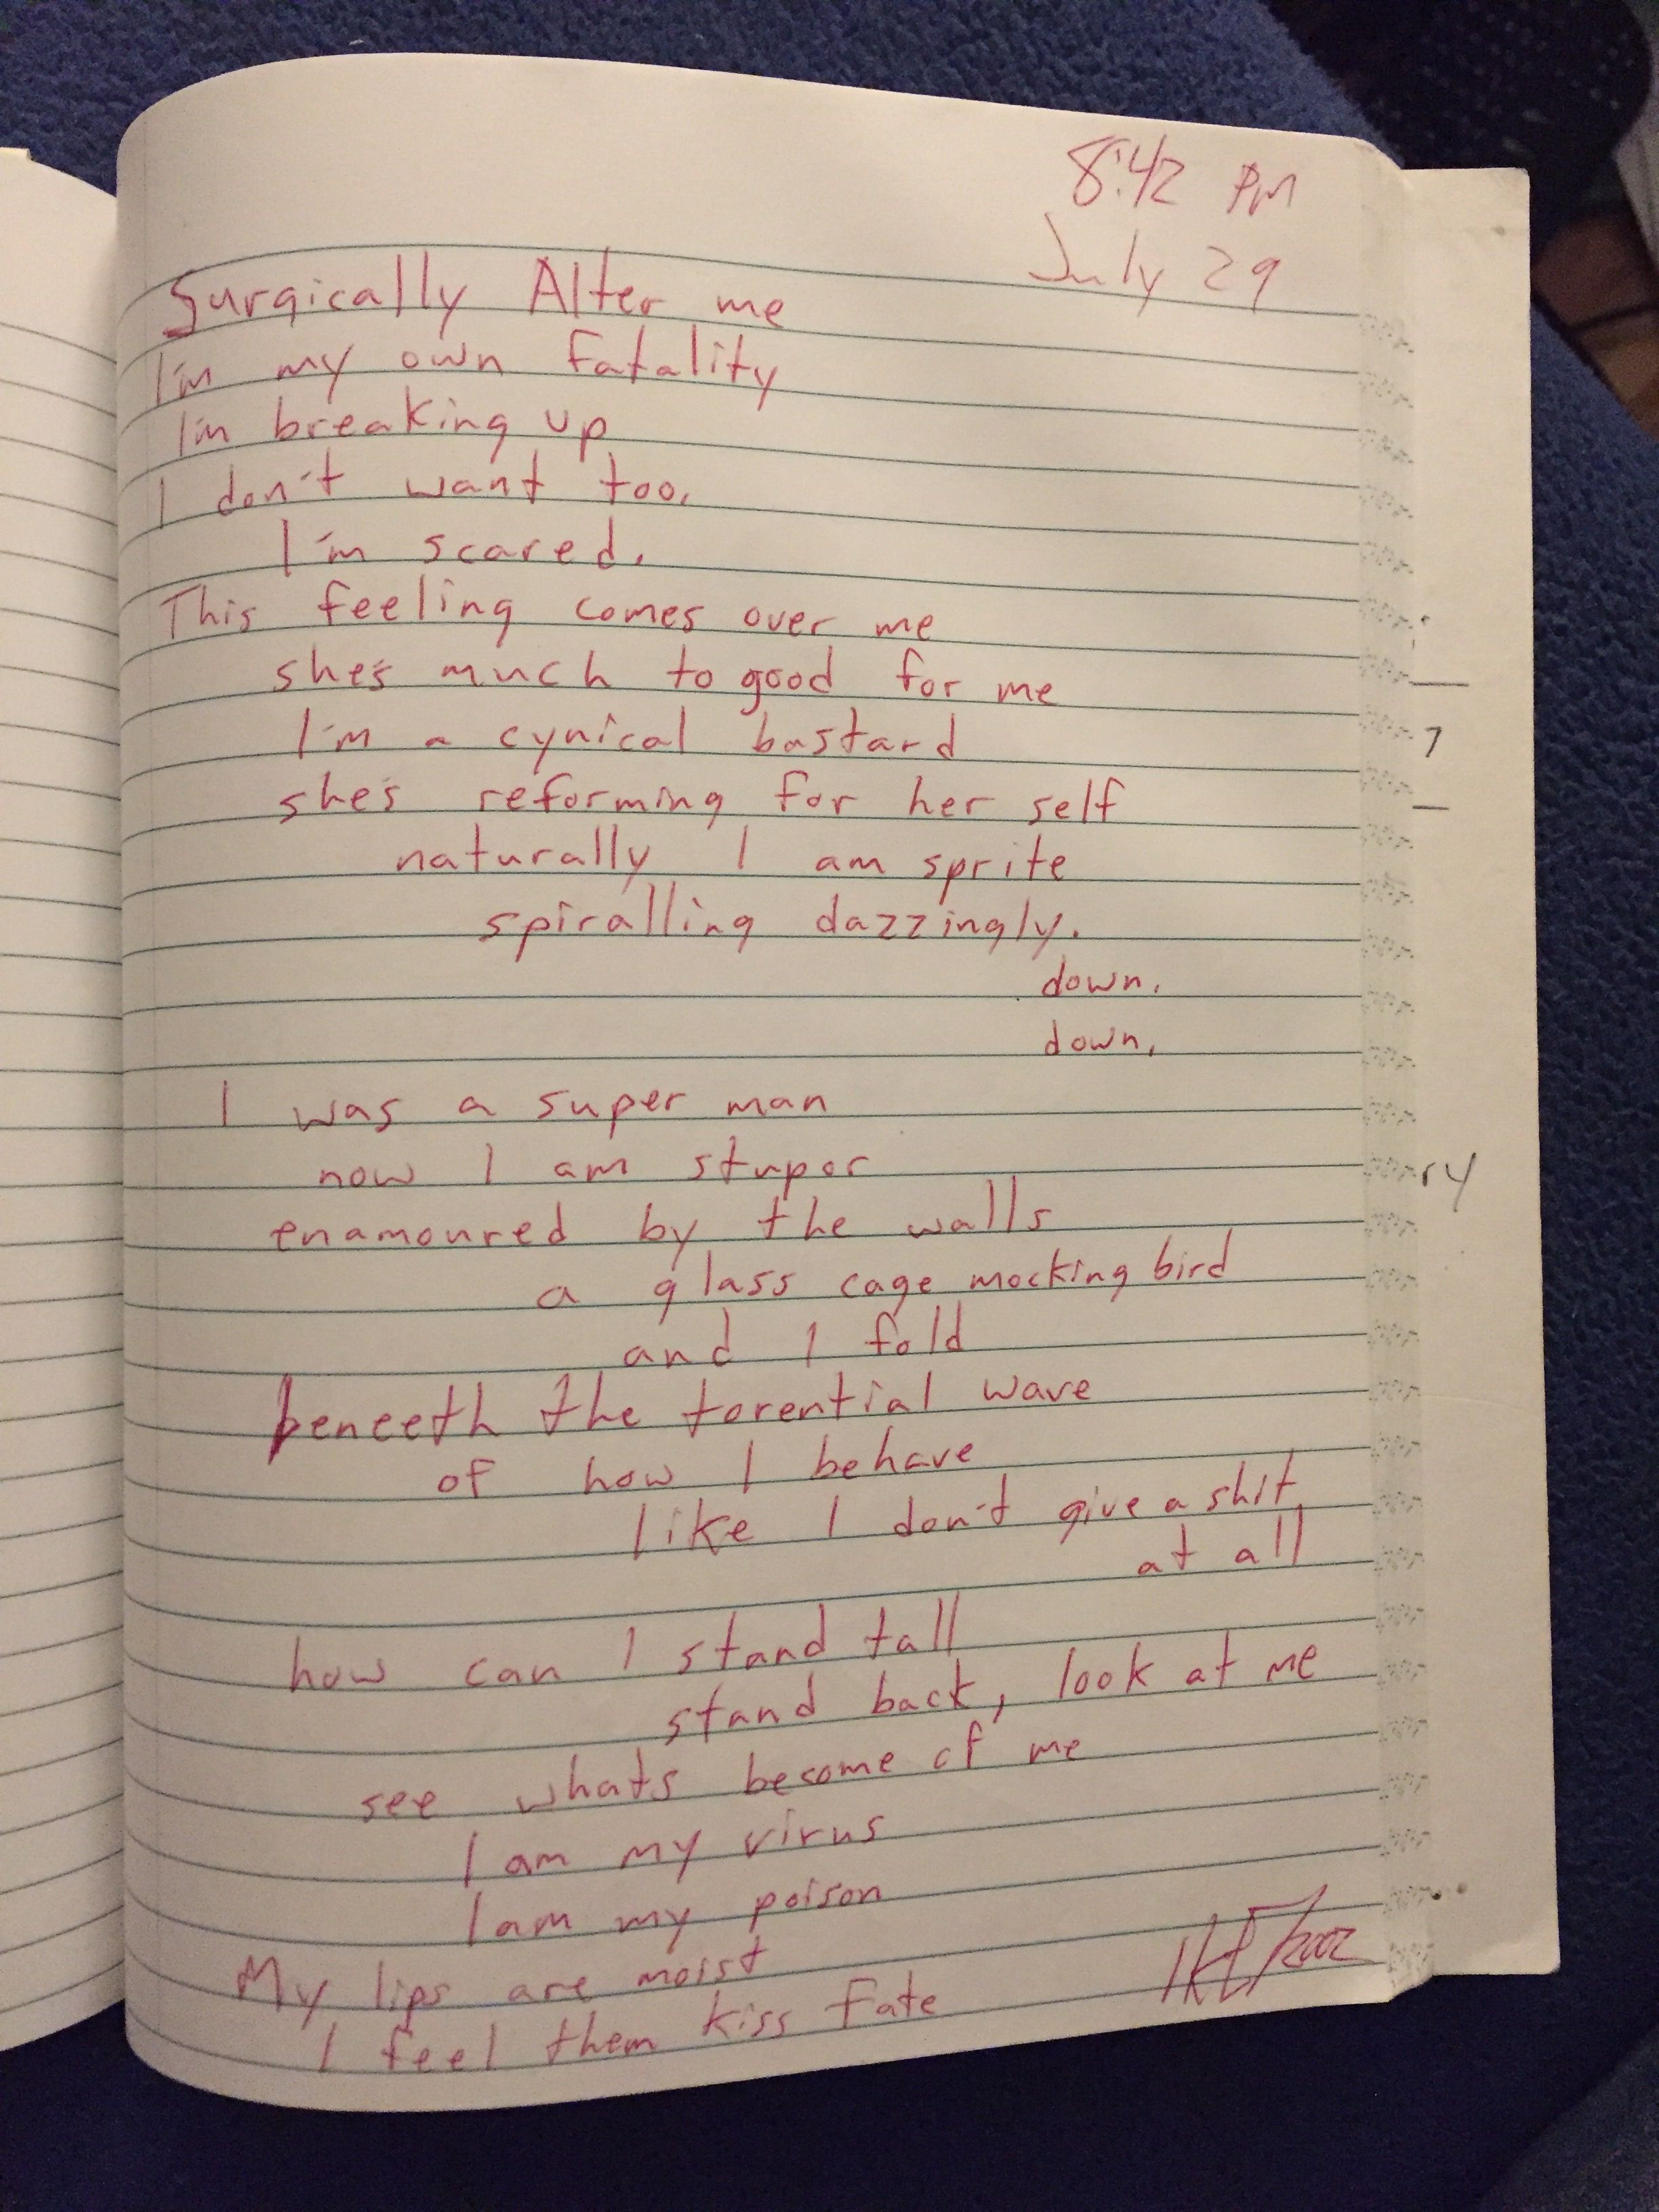 8:42 PM
July 29
Surgically Alter me
I'm my own fatality
I'm breaking up
I don't want too.
I'm scared.
This feeling comes over me
she's much to good for me
I'm a cynical bastard
she's reforming for her self
naturally I am sprite
spiralling dazzingly.
down.
down.
I was a super man
now I am stupor
enamoured by the walls
a glass cage mocking bird
and I fold
beneeth the torential wave
of how I behave
like I don't give a shit
at all
how can I stand tall
stand back, look at me
see whats become of me
I am my virus
I am my poison
My lips are moist
I feel them kiss fate
2002
7
ry